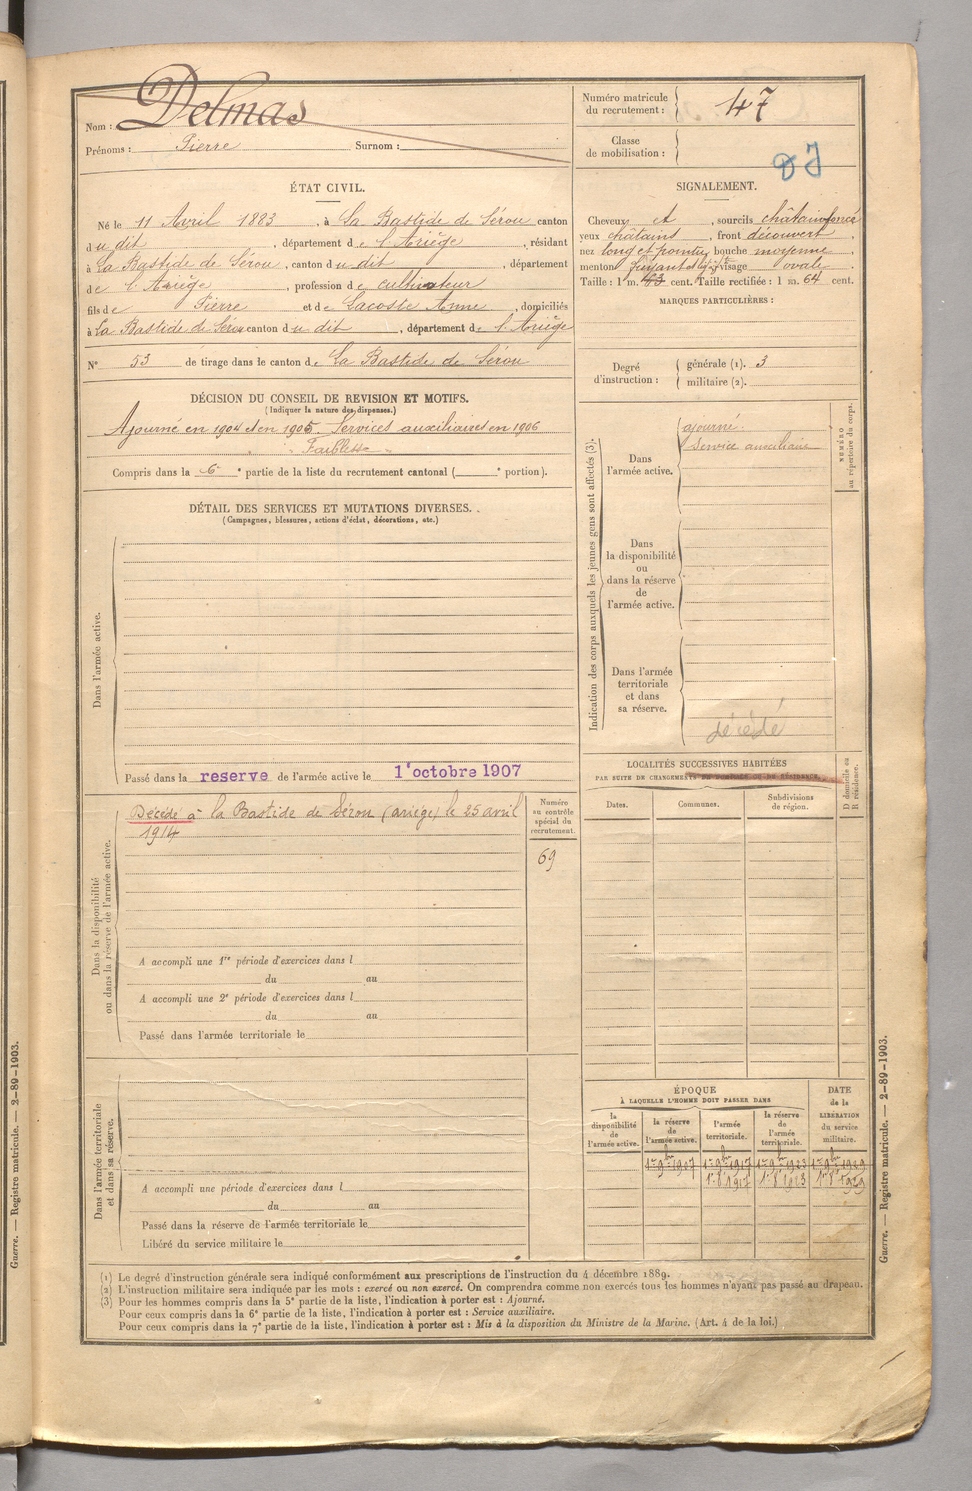 Nom : Delmas
Prénoms : Pierre Surnom :
Numéro matricule du recrutement : 47
Classe de mobilisation :
ÉTAT CIVIL.
Né le 11 Avril 1883, à La Bastide de Sérou canton
du dit, département de l'Ariège, résidant
à La Bastide de Sérou, canton du dit, département
de l'Ariège, profession de cultivateur
fils de Pierre et de Lacoste Anne, domiciliés
à La Bastide de Sérou canton du dit, département de l'Ariège
N° 53 de tirage dans le canton de La Bastide de Sérou
SIGNALEMENT.
Cheveux et, sourcils châtain foncé
yeux châtains, front découvert,
nez long et pointu, bouche moyenne
menton fuyant visage ovale.
Taille : 1 m. 63 cent. Taille rectifiée : 1 m. 64 cent.
MARQUES PARTICULIÈRES :
Degré d'instruction : générale (1). 3
militaire (2).
DÉCISION DU CONSEIL DE REVISION ET MOTIFS.
(Indiquer la nature des dispenses.)
Ajourné en 1904 et en 1905. Services auxiliaires en 1906
Faiblesse
Compris dans la 6e partie de la liste du recrutement cantonal ( e portion).
DÉTAIL DES SERVICES ET MUTATIONS DIVERSES.
(Campagnes, blessures, actions d'éclat, décorations, etc.)
Dans l'armée active.
Passé dans la reserve de l'armée active le 1er octobre 1907
Indication des corps auxquels les jeunes gens sont affectés (3).
NUMÉRO au répertoire du corps.
Dans l'armée active.
ajourné.
Service auxiliaire
Dans la disponibilité ou dans la réserve de l'armée active.
Dans l'armée territoriale et dans sa réserve.
décédé
Dans la disponibilité ou dans la réserve de l'armée active.
Décédé à la Bastide de Sérou (ariège) le 25 avril
1914
Numéro au contrôle spécial du recrutement.
69
A accompli une 1re période d'exercices dans l
du au
A accompli une 2e période d'exercices dans l
du au
Passé dans l'armée territoriale le
LOCALITÉS SUCCESSIVES HABITÉES
PAR SUITE DE CHANGEMENTS DE DOMICILE OU DE RÉSIDENCE.
D domicile ou R résidence.
Dates. Communes. Subdivisions de région.
Dans l'armée territoriale et dans sa réserve.
A accompli une période d'exercices dans l
du au
Passé dans la réserve de l'armée territoriale le
Libéré du service militaire le
ÉPOQUE
À LAQUELLE L'HOMME DOIT PASSER DANS
la disponibilité de l'armée active.
la réserve de l'armée active.
l'armée territoriale.
la réserve de l'armée territoriale.
DATE de la LIBÉRATION du service militaire.
1er 9bre 1907 1er 9bre 1917 1er 9bre 1923 1er 9bre 1929
(1) Le degré d'instruction générale sera indiqué conformément aux prescriptions de l'instruction du 4 décembre 1889.
(2) L'instruction militaire sera indiquée par les mots : exercé ou non exercé. On comprendra comme non exercés tous les hommes n'ayant pas passé au drapeau.
(3) Pour les hommes compris dans la 5e partie de la liste, l'indication à porter est : Ajourné.
Pour ceux compris dans la 6e partie de la liste, l'indication à porter est : Service auxiliaire.
Pour ceux compris dans la 7e partie de la liste, l'indication à porter est : Mis à la disposition du Ministre de la Marine. (Art. 4 de la loi.)
Guerre. — Registre matricule. — 2-89-1903.
Guerre. — Registre matricule. — 2-89-1903.